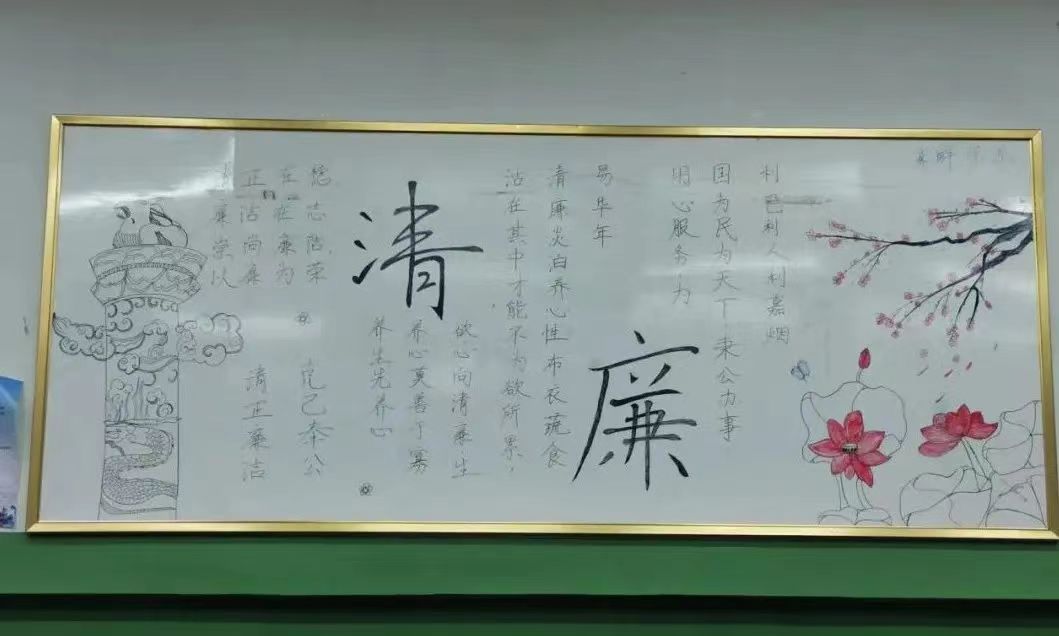 利人利嘉烟
国为民为天下
秉公办事
明心服务为
易华年
清廉
清廉炎泊养心性布衣蔬食
沽在其中才能不为欲所累，
欲心向清廉生
养心莫善于寡
养生先养心
志陪荣
在廉为
正沽尚廉
廉崇以
克己奉公
清正廉洁